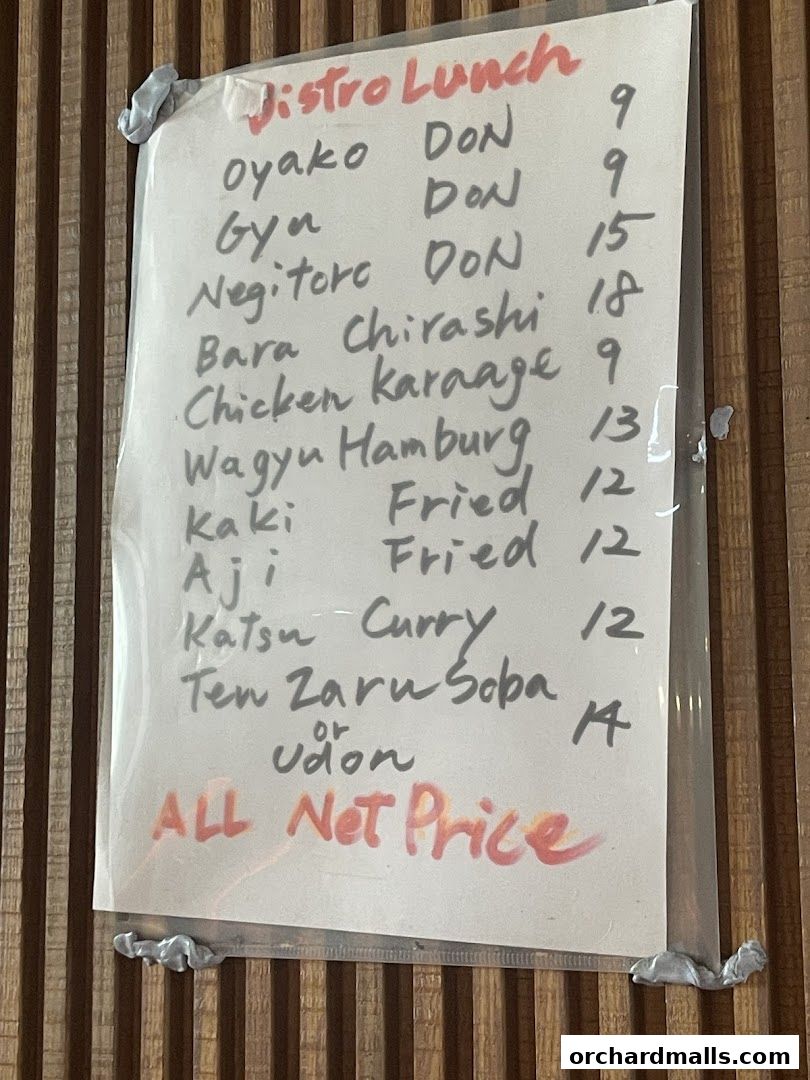 Bistro Lunch
Oyako DON 9
Gyu DON 9
Negitoro DON 15
Bara Chirashi 18
Chicken Karaage 9
Wagyu Hamburg 13
Kaki Fried 12
Aji Fried 12
Katsu Curry 12
Ten Zaru Soba
or 14
Udon
ALL Net Price
orchardmalls.com